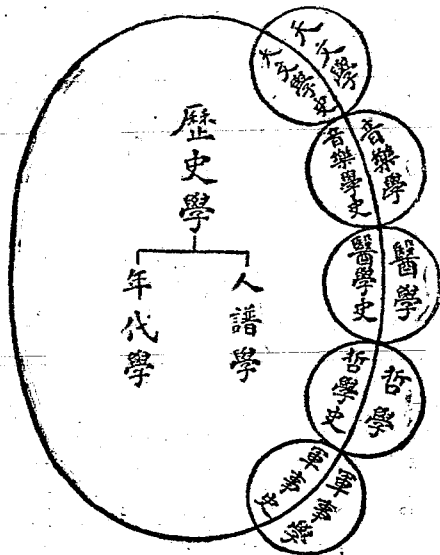 天文學
天文學史
音樂學
音樂學史
醫學
醫學史
哲學
哲學史
軍事學
軍事史
歷史學
人譜學
年代學